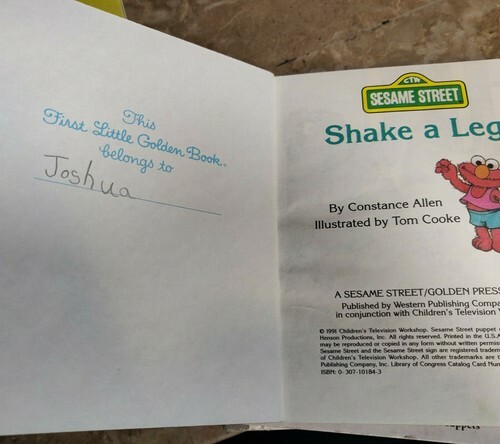 This
First Little Golden Book®
belongs to
Joshua
CTW
SESAME STREET
Shake a Leg
By Constance Allen
Illustrated by Tom Cooke
A SESAME STREET/GOLDEN PRESS
Published by Western Publishing Compa
in conjunction with Children's Television W
© 1991 Children's Television Workshop. Sesame Street puppet
Henson Productions, Inc. All rights reserved. Printed in the U.S.A.
may be reproduced or copied in any form without written permiss
Sesame Street and the Sesame Street sign are registered tradem
of Children's Television Workshop. All other trademarks are t
Publishing Company, Inc. Library of Congress Catalog Card Num
ISBN: 0-307-10184-3